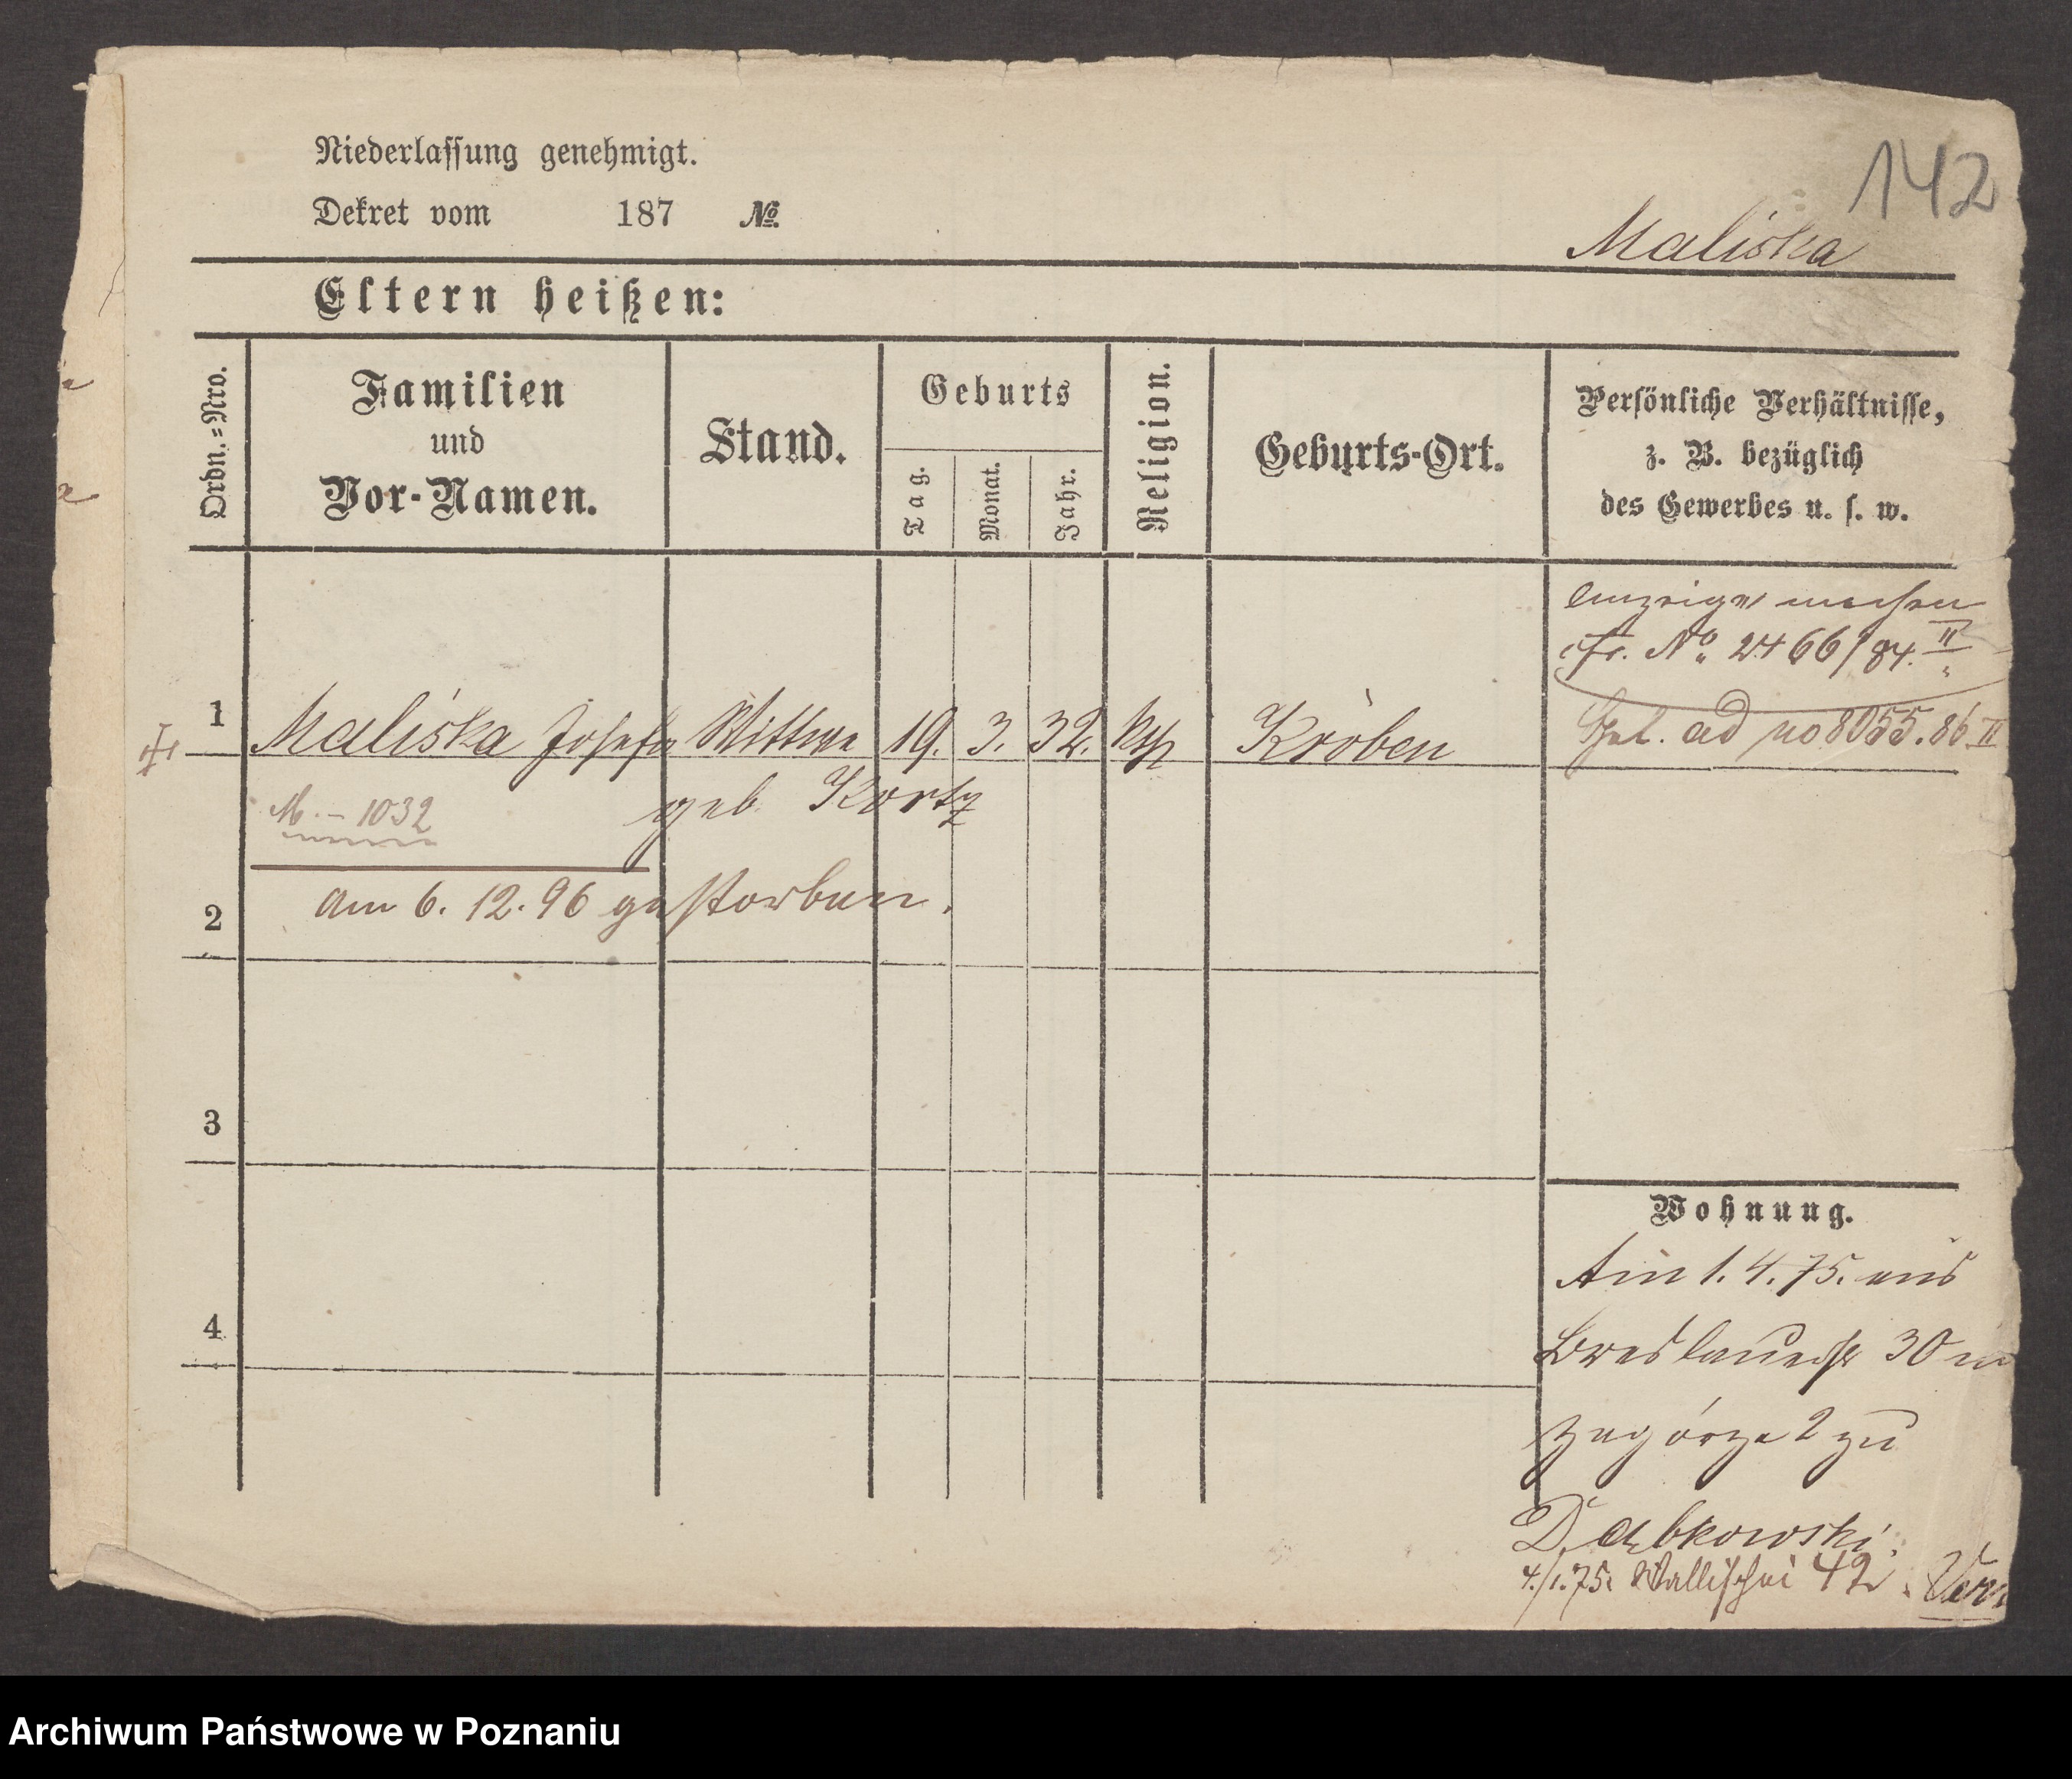 142
Niederlassung genehmigt.
Dekret vom 187 №
Maliska
Eltern heißen:
Ordn.=Nro.
Familien
und
Vor-Namen.
Stand.
Geburts
Tag.
Monat.
Jahr.
Religion.
Geburts-Ort.
Persönliche Verhältnisse,
z. B. bezüglich
des Gewerbes u. s. w.
Anzeige machen
cfr. No. 2466/84. II
1 Maliska Josefa Wittwe 19. 3. 32. kth Kröben
ad no 8055.86. II
geb. Kortz
M. – 1032
am 6. 12. 96 gestorben.
2
3
4
Wohnung.
Am 1. 4. 75. aus
Breslauerstr 30 n
Zagórze 2 zu
Dąbkowski.
4./1.75. Wallischei 42.
Archiwum Państwowe w Poznaniu